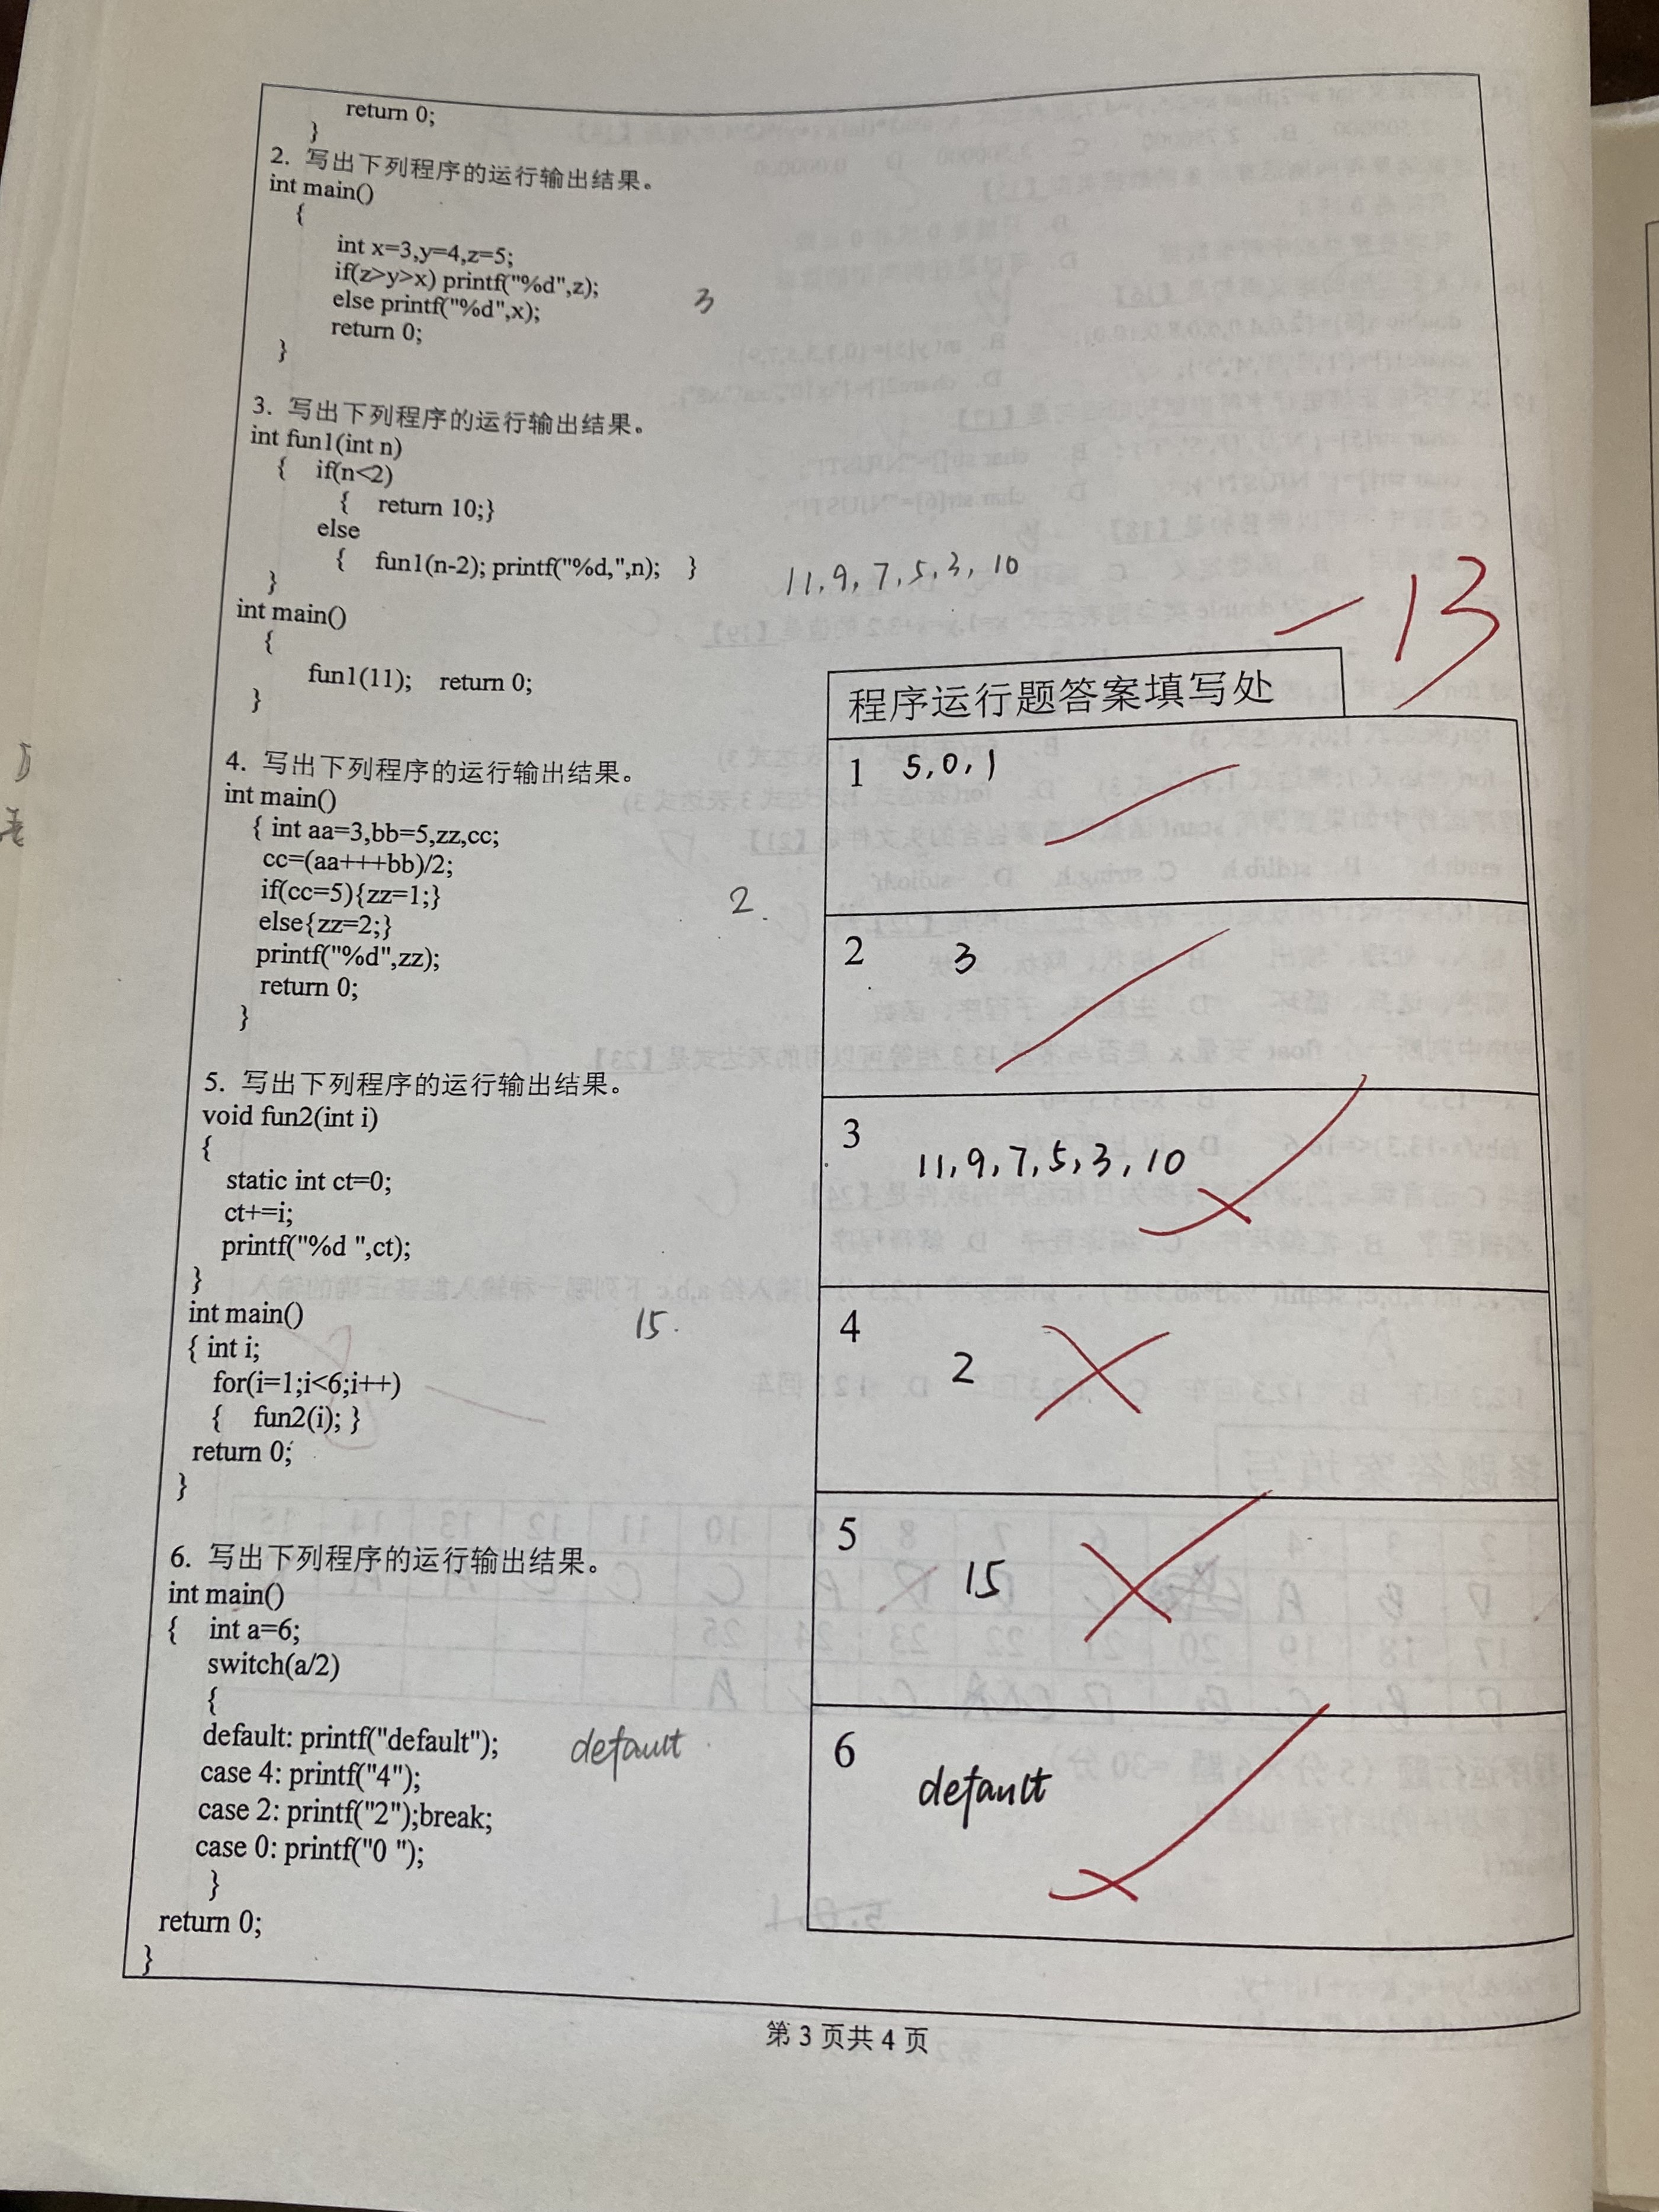 return 0;
}
2. 写出下列程序的运行输出结果。
int main()
{
int x=3,y=4,z=5;
if(z>y>x) printf("%d",z);
else printf("%d",x);
return 0;
}
3
3. 写出下列程序的运行输出结果。
int fun1(int n)
{ if(n<2)
{ return 10;}
else
{ fun1(n-2); printf("%d,",n); }
}
11,9,7,5,3,10
int main()
{
fun1(11); return 0;
}
4. 写出下列程序的运行输出结果。
int main()
{ int aa=3,bb=5,zz,cc;
cc=(aa+++bb)/2;
if(cc=5){zz=1;}
else{zz=2;}
printf("%d",zz);
return 0;
}
2.
5. 写出下列程序的运行输出结果。
void fun2(int i)
{
static int ct=0;
ct+=i;
printf("%d ",ct);
}
int main()
{ int i;
for(i=1;i<6;i++)
{ fun2(i); }
return 0;
}
15.
6. 写出下列程序的运行输出结果。
int main()
{ int a=6;
switch(a/2)
{
default: printf("default");
case 4: printf("4");
case 2: printf("2");break;
case 0: printf("0 ");
}
return 0;
}
default
-13
程序运行题答案填写处
1 5,0,1
2 3
3 11,9,7,5,3,10
4 2
5 15
6 default
第 3 页共 4 页